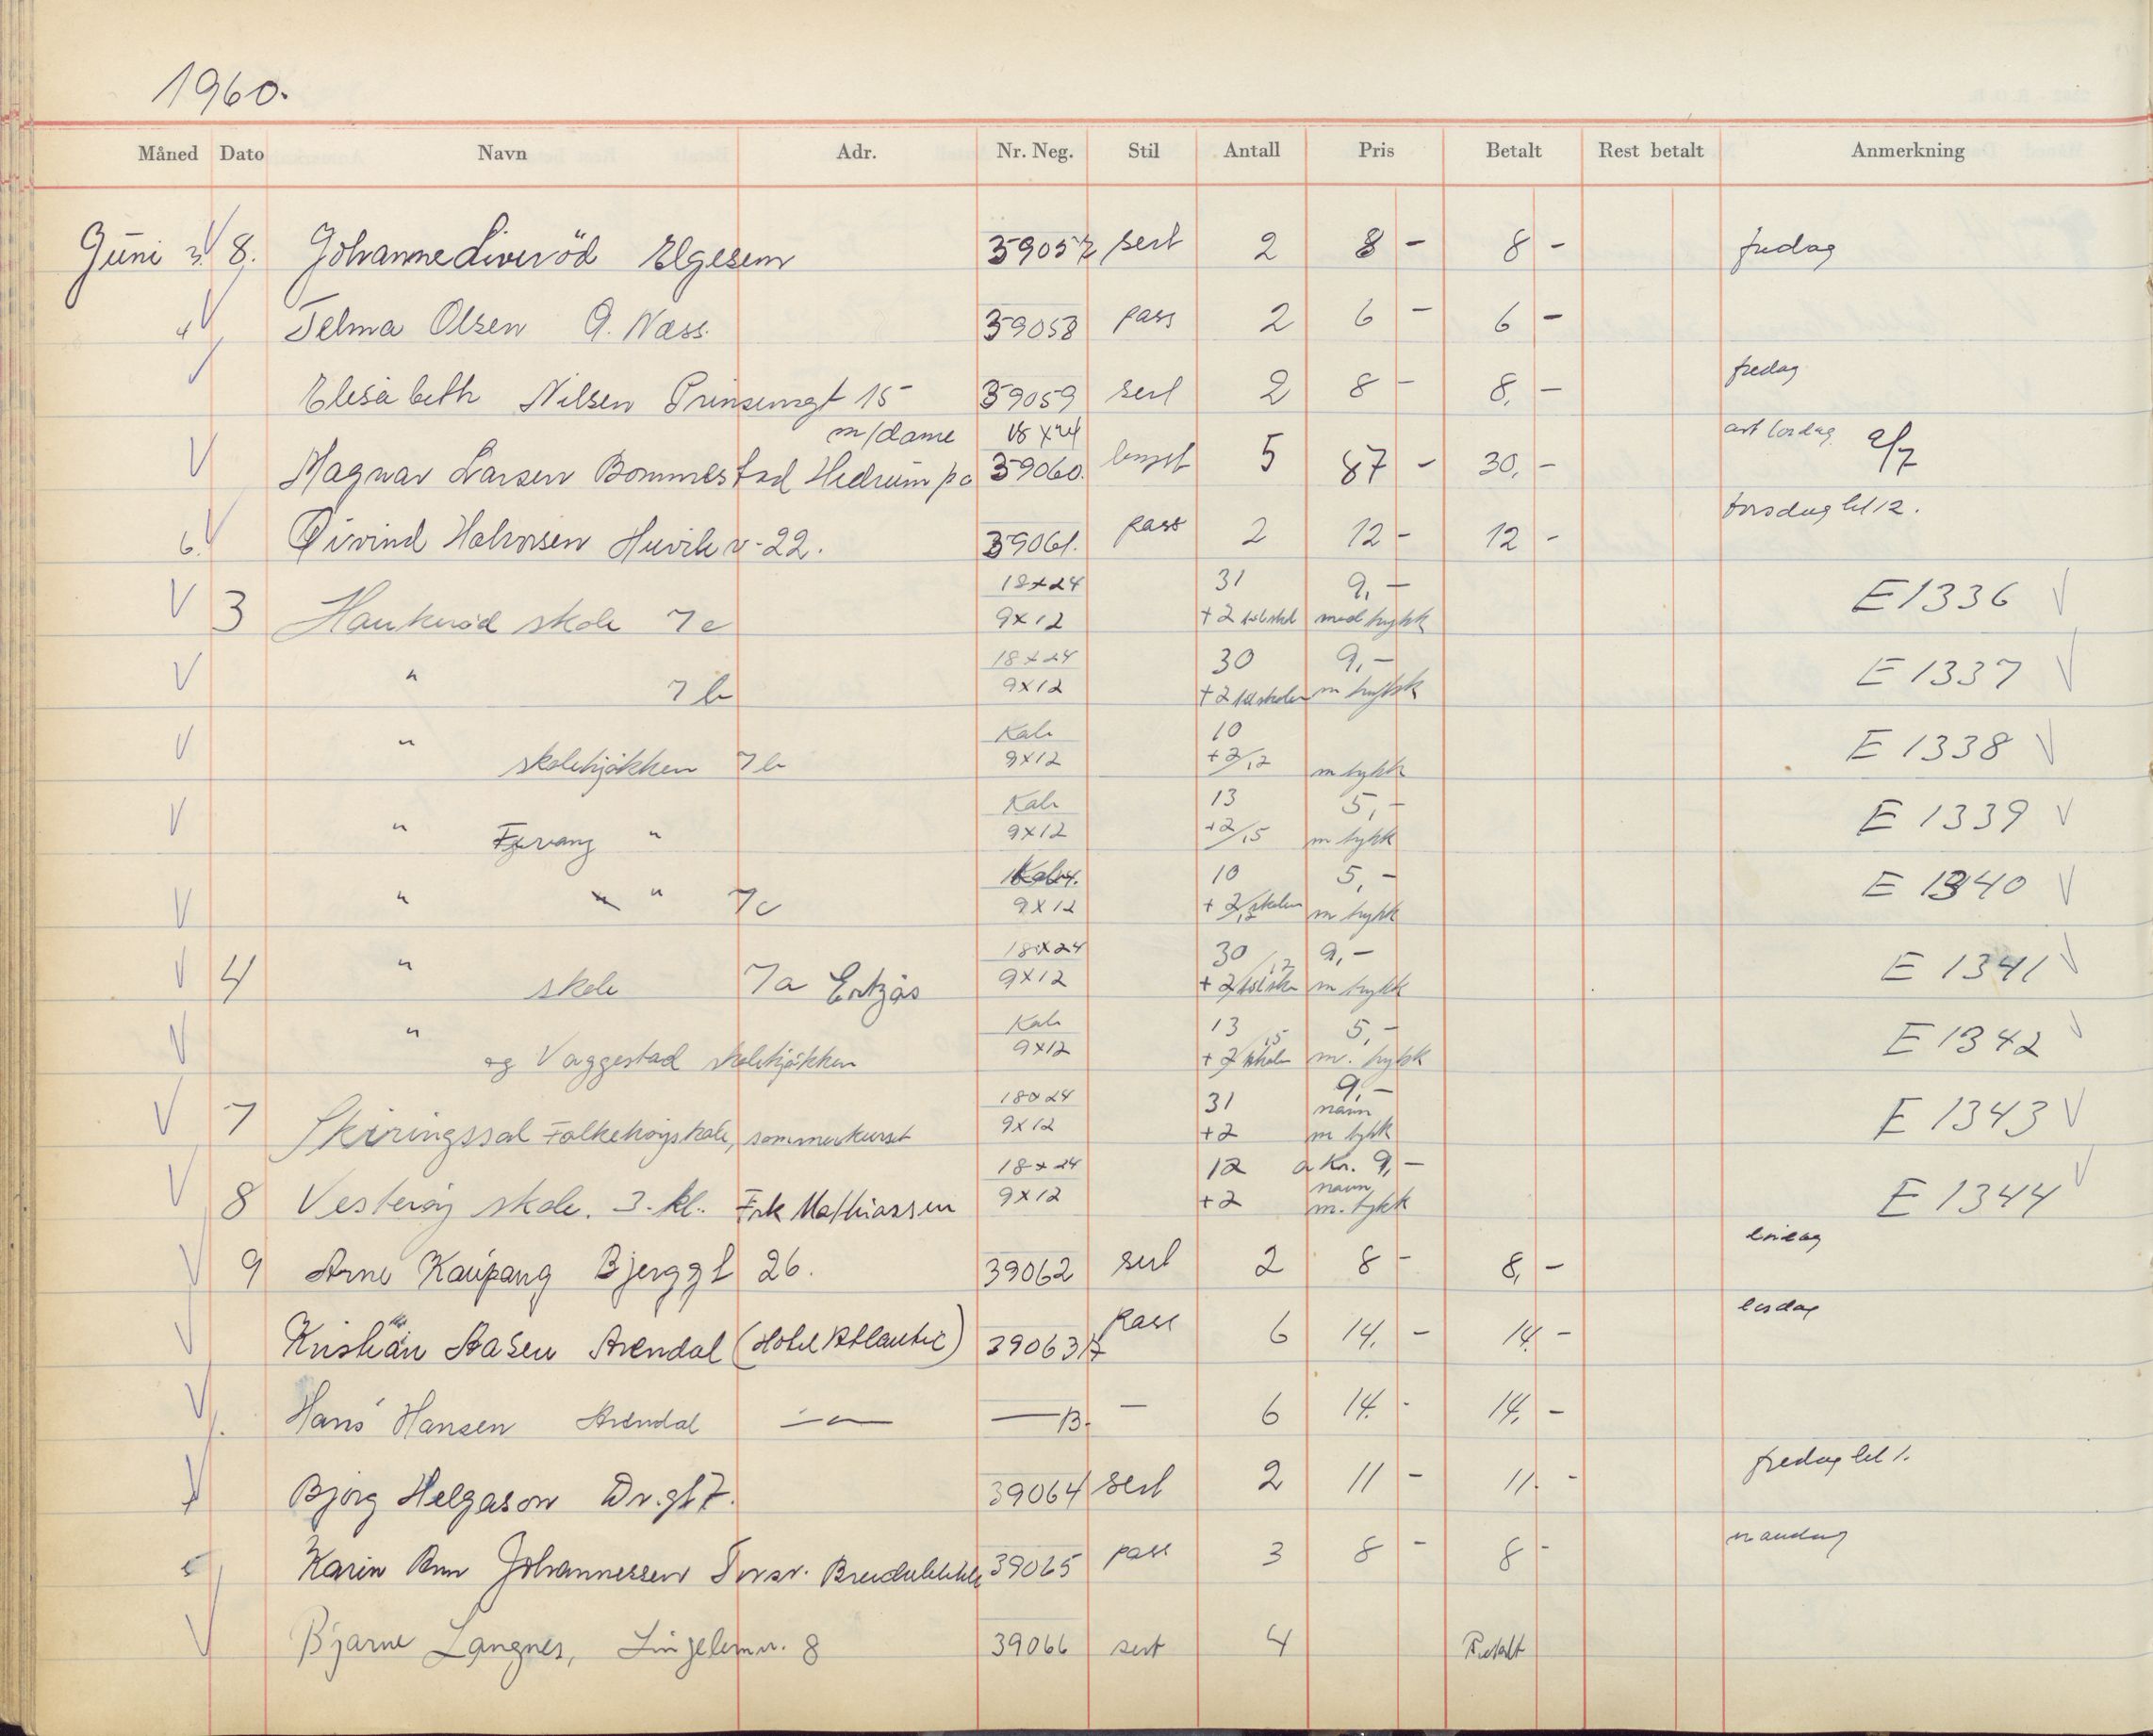 1960.
Måned Dato Navn Adr. Nr. Neg. Stil Antall Pris Betalt Rest betalt Anmerkning
Juni 3. 8. Johanne Liverød Elgesem 39057 sert 2 8 - 8 - fredag
4 Telma Olsen G. Næss. 39058 pass 2 6 - 6 -
Elisabeth Nilsen Prinsensgt 15 39059 sert 2 8 - 8,- fredag
m/dame 18 x 24
Magnar Larsen Bommestad Hedrum pa 39060. 5 87 - 30,- 2/7
6. Øivind Halvorsen Huvik v. 22. 39061. pass 2 12 - 12 - torsdag kl 12.
18x24 31 9,-
3 Haukerød skole 7c 9x12 + 2 til skol med trykk E1336
18x24 30 9,-
" 7b 9x12 + 2 til skolen m trykk E1337
Kab 10
" skolekjøkken 7b 9x12 + 2/12 m trykk E1338
Kab 13 5,-
" Fevang " 9x12 +2/15 m trykk E1339
10 5,-
" " 7c 9x12 + 2/12 skolen m trykk E1340
18x24 30 9,-
4 " skole 7a 9x12 + 2 til skolen m trykk E1341
Kab 13 5,-
" og Vaggestad skolekjøkken 9x12 + 2/15 skolen m. trykk E1342
18x24 31 9,-
navn
7 Skiringssal Folkehøyskole, sommerkurset 9x12 +2 m trykk E1343
18x24 12 a kr. 9,-
navn
8 Vesterøy skole. 3. kl. Frk Mathiassen 9x12 +2 m. trykk E1344
9 Arne Kaupang Bjerggt 26. 39062 sert 2 8 - 8,- lördag
Kristian Aasen Arendal (Hotel Atlantic) 39063A pass 6 14,- 14,- lørdag
Hans Hansen Arendal — " — — B. — 6 14.- 14,-
Bjørg Helgason Dr.gt 7. 39064 sert 2 11 - 11.- fredag kl 1.
Karin Ann Johannessen 39065 pass 3 8 - 8 - mandag
Bjarne Langnes, Lingelemv. 8 39066 sert 4 Betalt